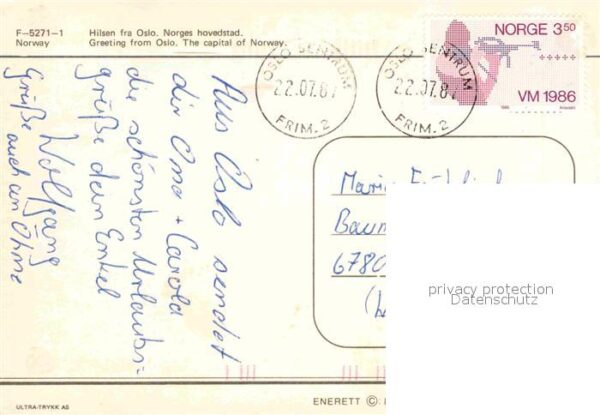 F-5271-1
Norway
Hilsen fra Oslo. Norges hovedstad.
Greeting from Oslo. The capital of Norway.
OSLO SENTRUM
22.07.87
FRIM. 2
OSLO SENTRUM
22.07.87
FRIM. 2
NORGE 3,50
VM 1986
Aus Oslo sendet
dir Oma + Carola
die schönsten Urlaubs=
grüße dein Enkel
Wolfgang
Grüße auch an
6780
privacy protection
Datenschutz
ULTRA-TRYKK AS
ENERETT ©: